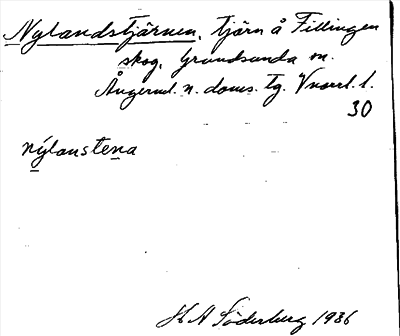 Nylandstjärnen, tjärn å Fillingen
skog, Grundsunda sn.
Ångerml. n. doms. tg. Vnorrl. l.
30
nýlanstena
H A Söderberg 1936